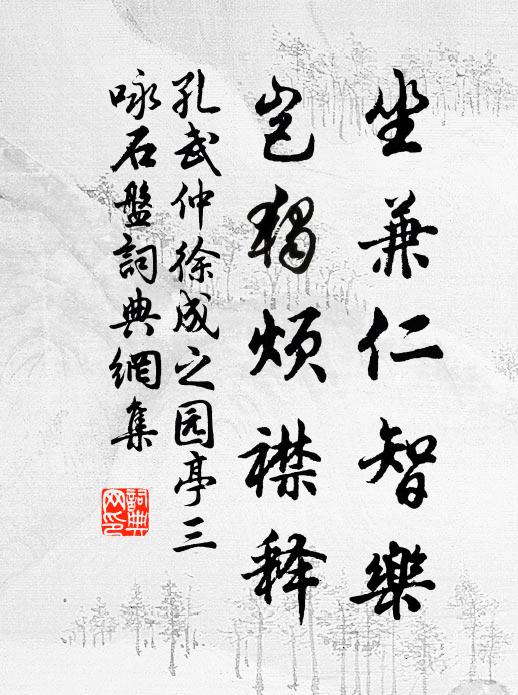 坐兼仁智樂
岂獨煩襟释
孔武仲徐成之园亭三
咏石盤詞典網集
詞典
网印